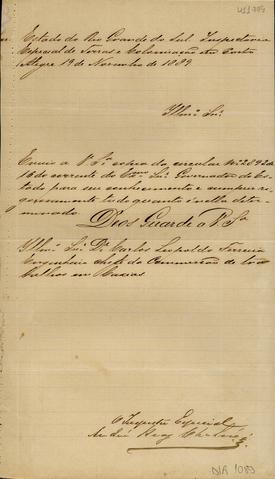 Estado do Rio Grande do Sul. Inspectoria
Especial de Terras e Colonisação em Porto
Alegre 19 de Novembro de 1889
Illmo Snr
Envio a V. Sa copia da circular No 2892 de
18 do corrente do Exmo Snr Governador do Es-
tado para seu conhecimento e cumprir ri-
gorosamente tudo quanto é nella deter-
minado.
Deos Guarde a V. Sa
Illmo Snr Dr Carlos Leopoldo
Engenheiro chefe da Commissão de
em Caxias
O Inspector Especial